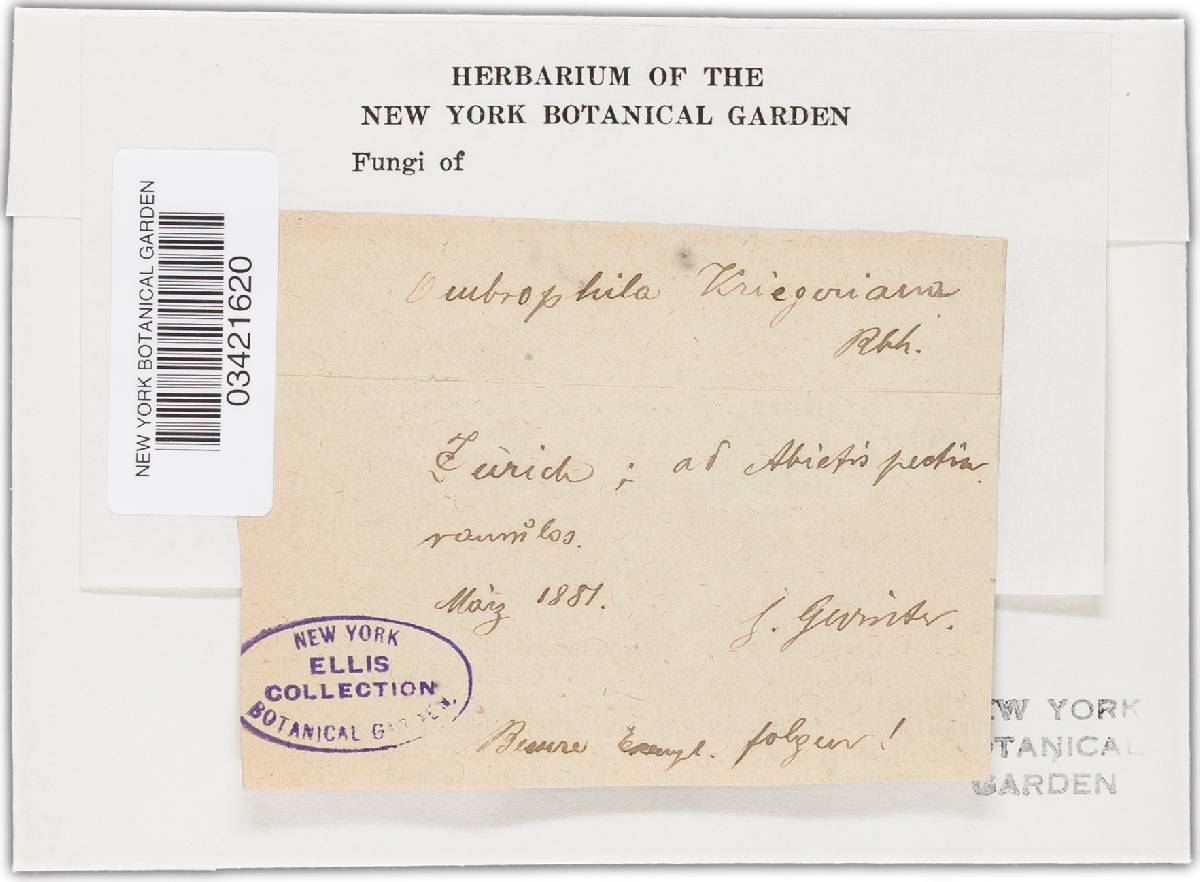 HERBARIUM OF THE
NEW YORK BOTANICAL GARDEN
Fungi of
NEW YORK BOTANICAL GARDEN
03421620
Ombrophila Kriegeriana
Rbh.
Zürich; ad Abietis pectin.
ramulos.
März 1881.
G. Winter.
NEW YORK
ELLIS
COLLECTION
BOTANICAL GARDEN.
Bessere Exempl. folgen!
EW YORK
OTANICAL
GARDEN